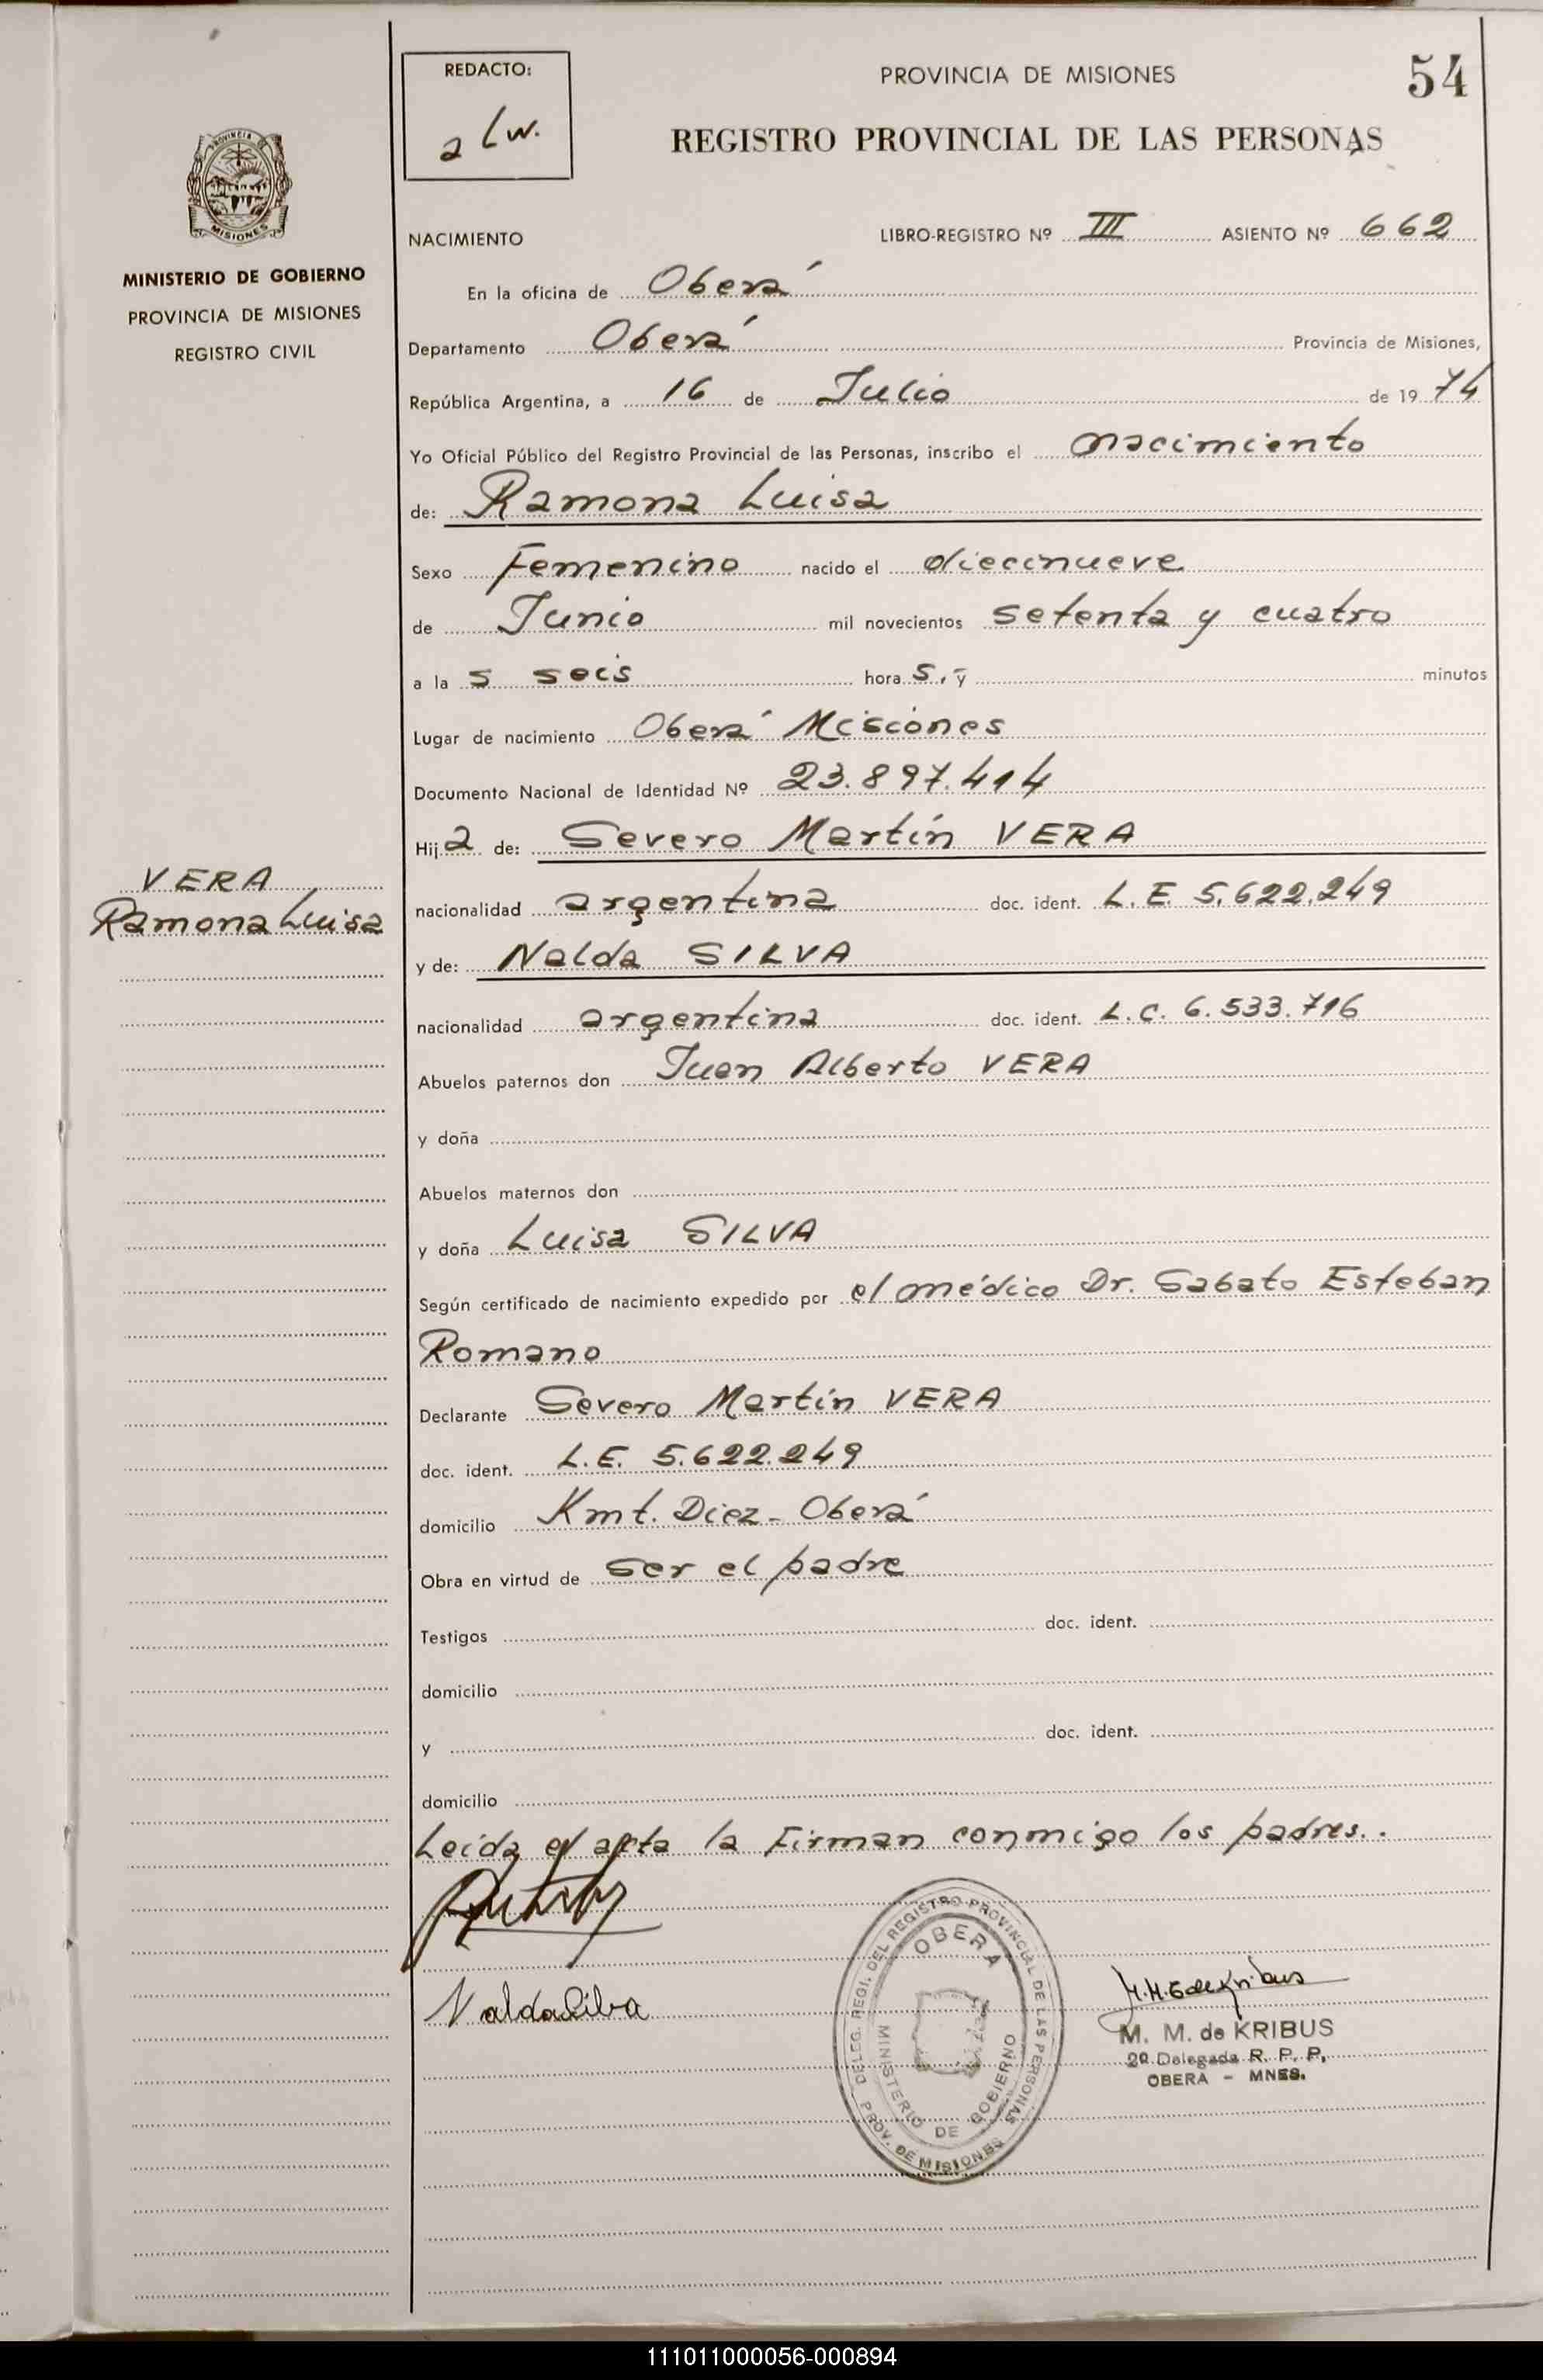 REDACTO:
a Lw.
PROVINCIA DE MISIONES
54
REGISTRO PROVINCIAL DE LAS PERSONAS
PROVINCIA DE
MISIONES
MINISTERIO DE GOBIERNO
PROVINCIA DE MISIONES
REGISTRO CIVIL
NACIMIENTO
LIBRO-REGISTRO Nº III ASIENTO Nº 662
En la oficina de Oberá
Departamento Oberá Provincia de Misiones,
República Argentina, a 16 de Julio de 1974
Yo Oficial Público del Registro Provincial de las Personas, inscribo el nacimiento
de: Ramona Luisa
Sexo Femenino nacido el diecinueve
de Junio mil novecientos setenta y cuatro
a la s seis hora s, y minutos
Lugar de nacimiento Oberá Misiones
Documento Nacional de Identidad Nº 23.897.414
Hija de: Severo Martín VERA
VERA
Ramona Luisa
nacionalidad argentina doc. ident. L.E. 5.622.249
y de: Nalda SILVA
nacionalidad argentina doc. ident. L.C. 6.533.716
Abuelos paternos don Juan Alberto VERA
y doña
Abuelos maternos don
y doña Luisa SILVA
Según certificado de nacimiento expedido por el médico Dr. Sabato Esteban
Romano
Declarante Severo Martín VERA
doc. ident. L.E. 5.622.249
domicilio Kmt. Diez - Oberá
Obra en virtud de ser el padre
Testigos doc. ident.
domicilio
y doc. ident.
domicilio
Leida el acta la firman conmigo los padres..
Nalda Silva
DELEG. REGI. DEL REGISTRO PROVINCIAL DE LAS PERSONAS
PROV. DE MISIONES
OBERA
MINISTERIO DE GOBIERNO
M. M. de KRIBUS
2º Delegada R. P. P.
OBERA - MNES.
111011000056-000894